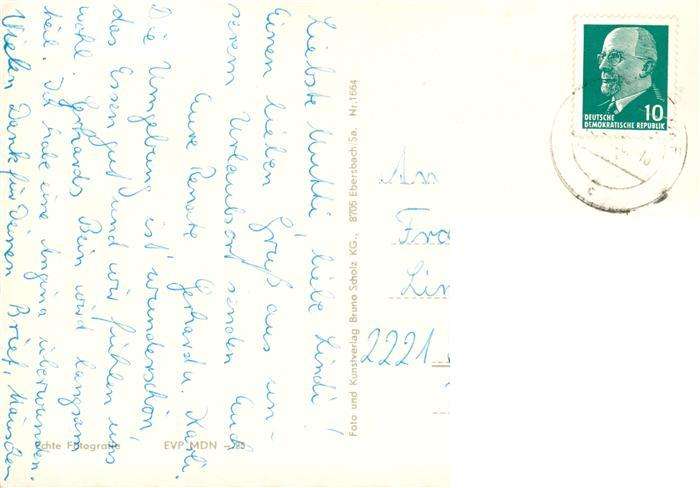 Liebste Mutti, liebe Lindi!
Einen lieben Gruß aus un-
serem Urlaubsort senden Euch
Eure Renate Gerhard u.
Die Umgebung ist wunderschön
das Essen gut und wir fühlen uns
wohl. Gerhards Bein wird langsam
heil. Ich habe eine Angina überwunden.
Vielen Dank für Deinen Brief, Mäuschen
Echte Fotografie EVP MDN
Foto und Kunstverlag Bruno Scholz KG., 8705 Ebersbach/Sa. Nr. 1664
An
Fra
Lin
2221
10
DEUTSCHE
DEMOKRATISCHE REPUBLIK